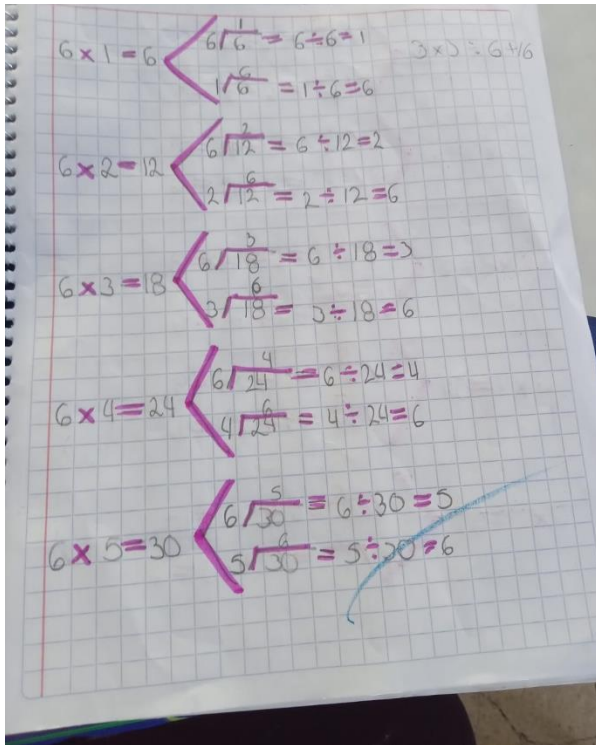 1
6 × 1 = 6 6⟌6 = 6÷6=1
6
1⟌6 = 1÷6=6
2
6 × 2 = 12 6⟌12 = 6÷12=2
6
2⟌12 = 2÷12=6
3
6 × 3 = 18 6⟌18 = 6÷18=3
6
3⟌18 = 3÷18=6
4
6 × 4 = 24 6⟌24 = 6÷24=4
6
4⟌24 = 4÷24=6
5
6 × 5 = 30 6⟌30 = 6÷30=5
6
5⟌30 = 5÷30=6